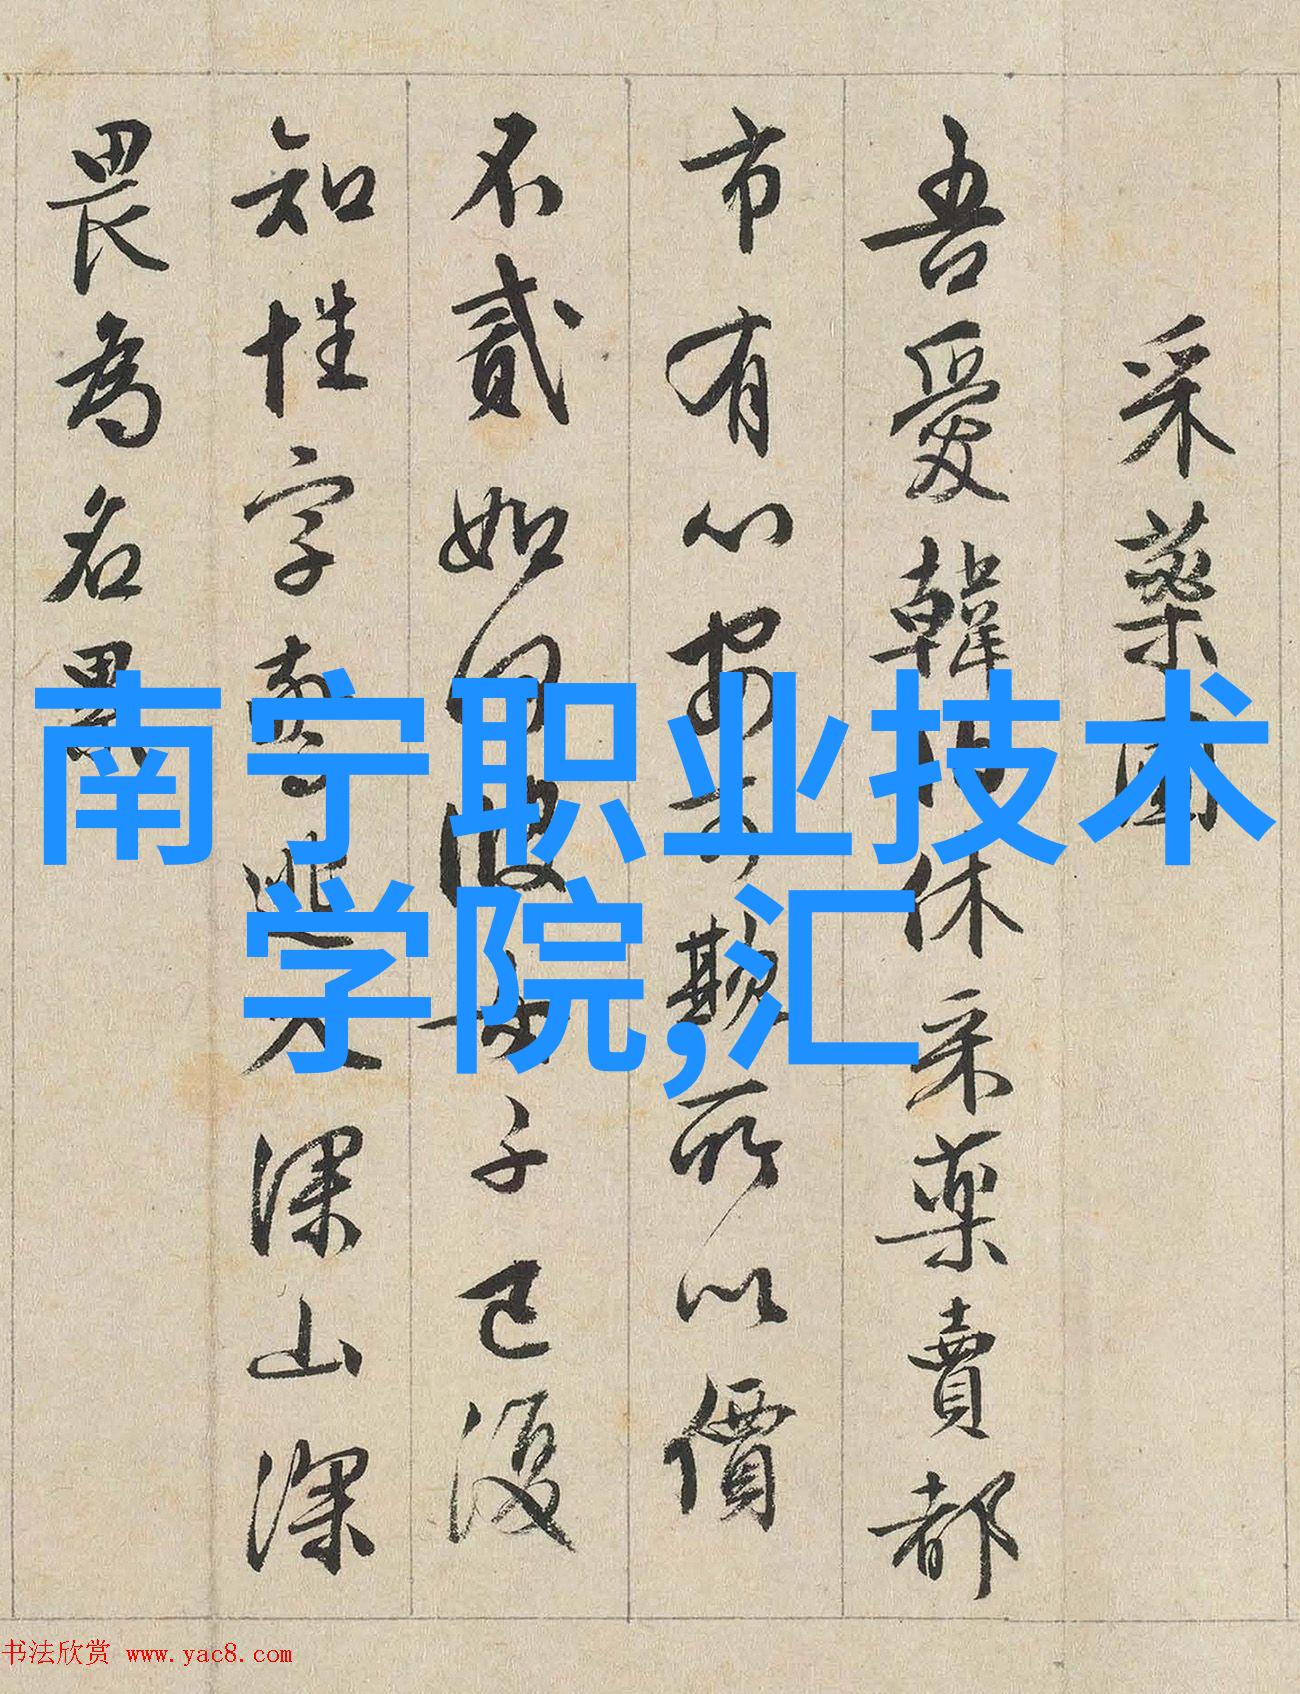 采藥圖
吾愛韓伯休采藥賣都
市有心安可欺所以價
不貳如何彼女子已復
知性字驚逃入深山深
畏為名累
南宁职业技术
学院,汇
书法欣赏 www.yac8.com